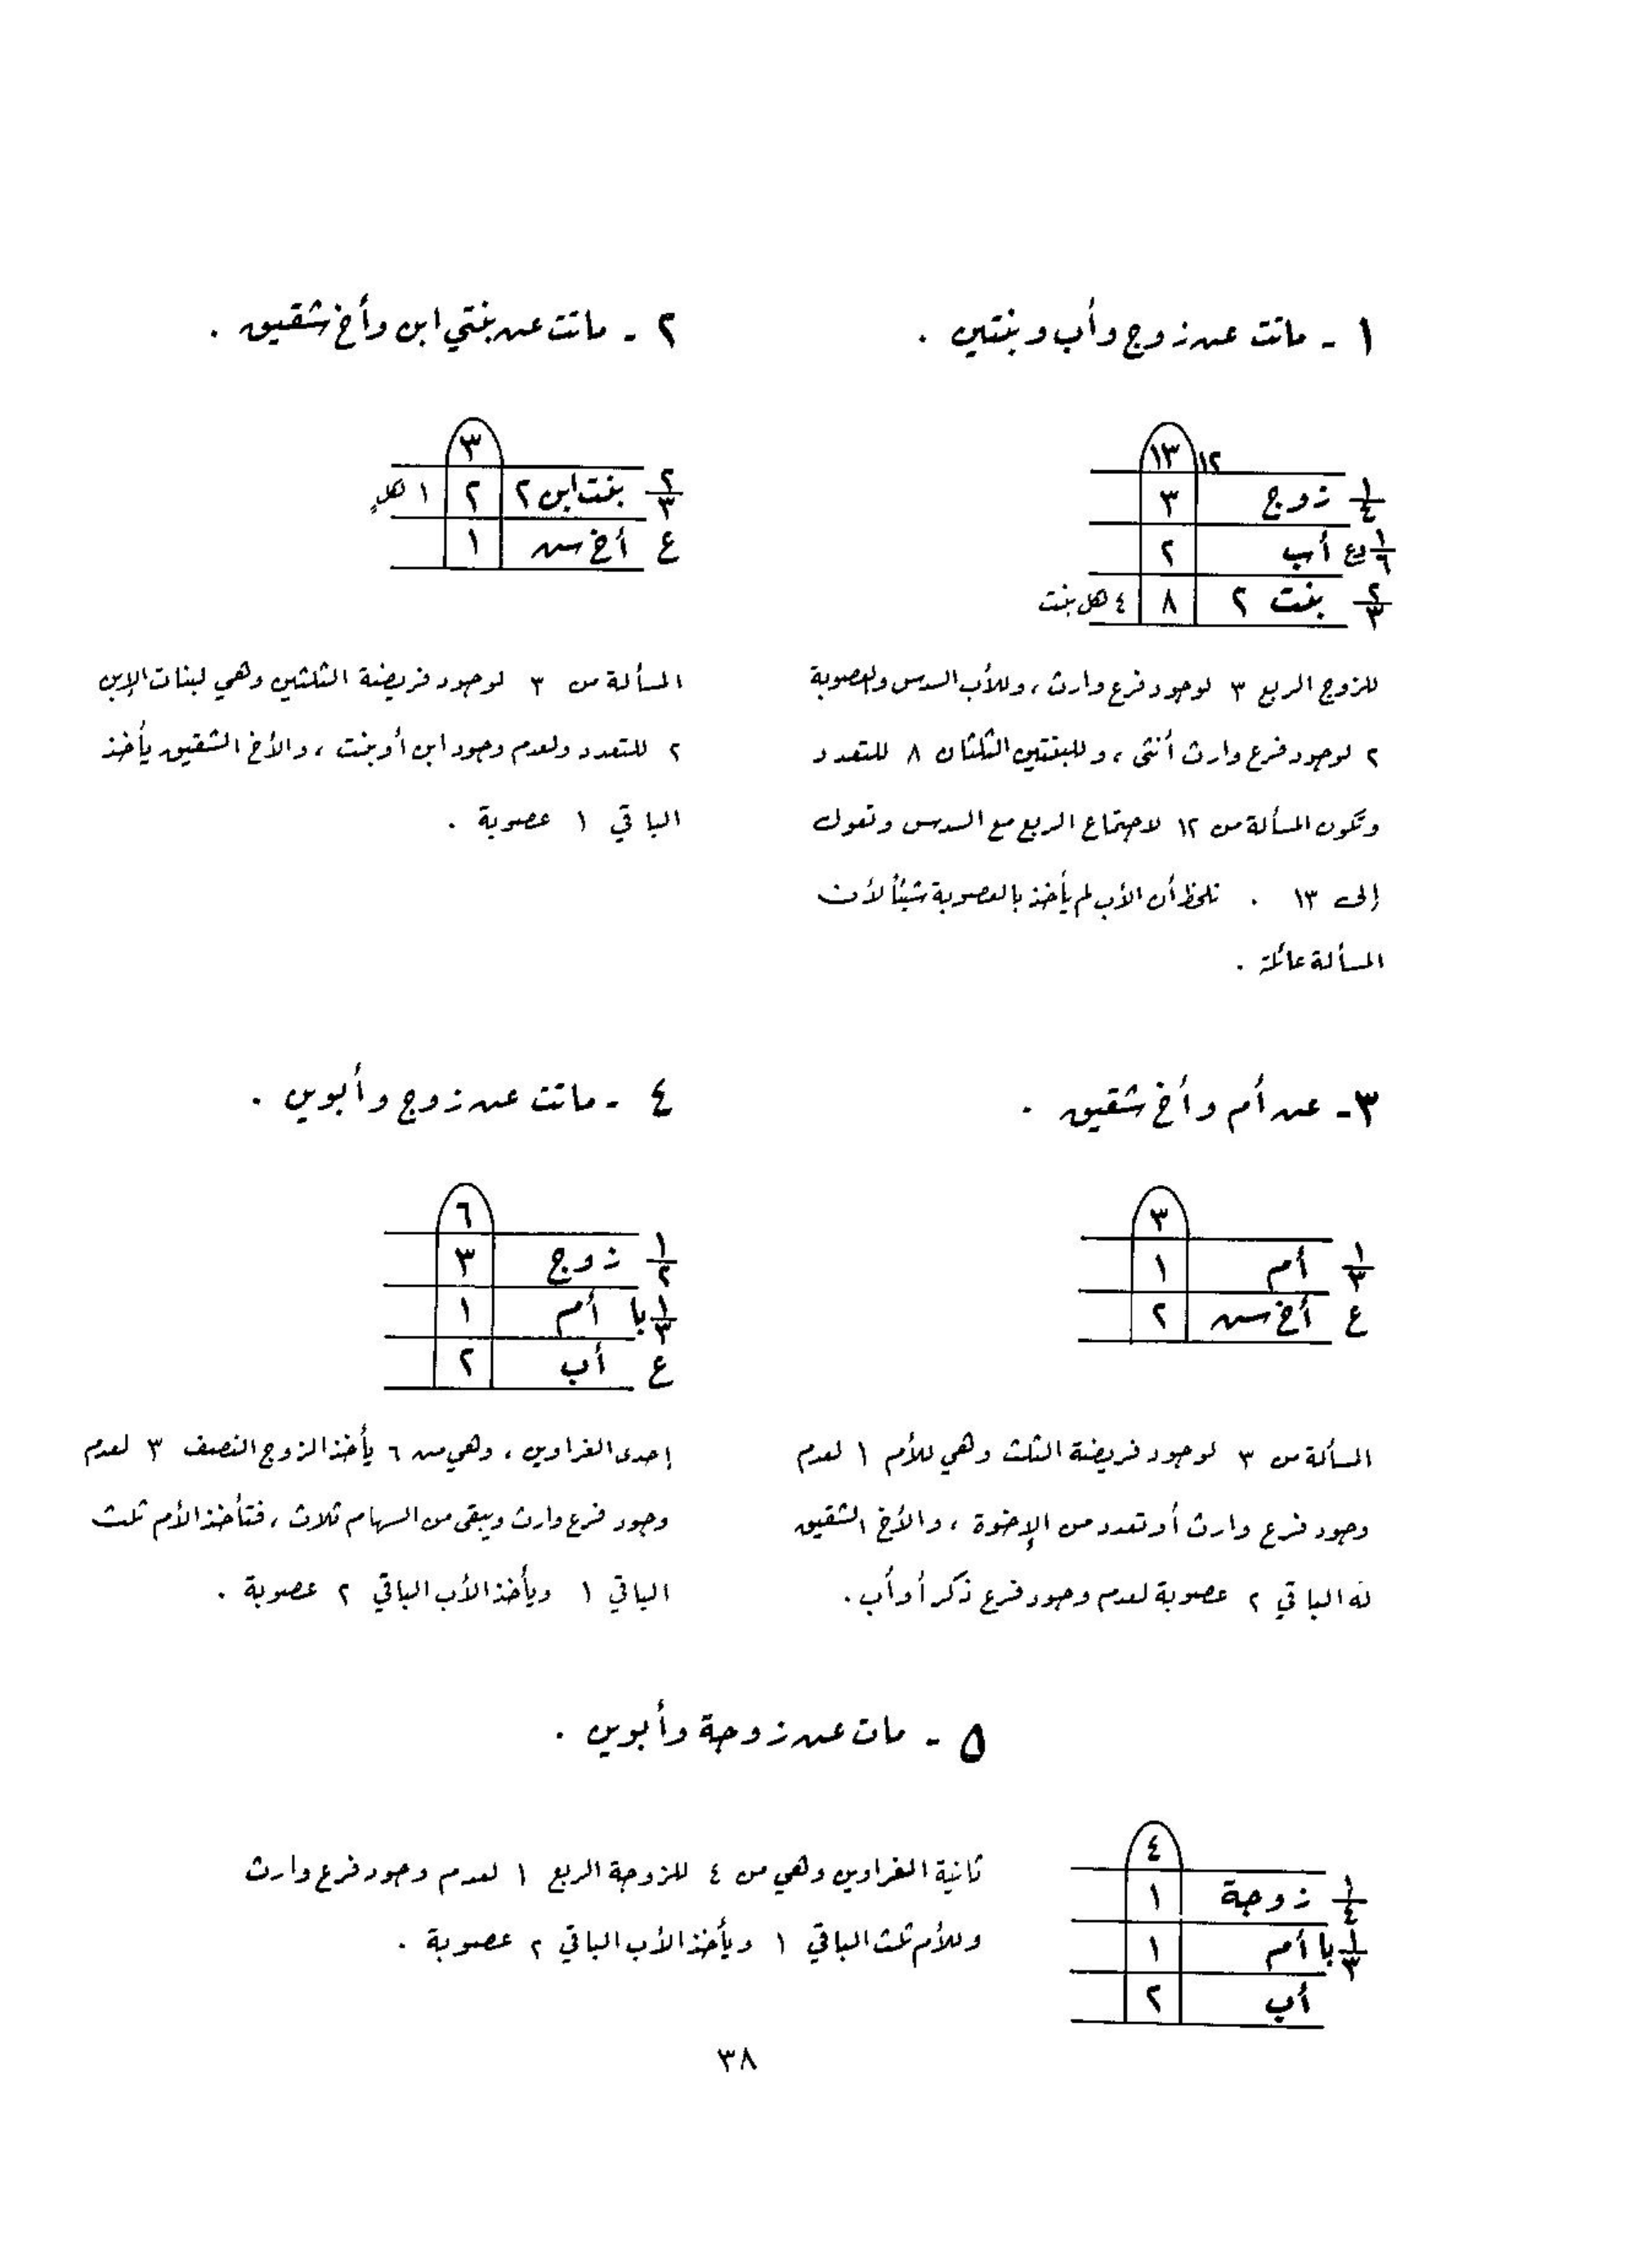 ١ - ماتت عن زوج وأب وبنتين .
١٣ ١٢
١/٤ زوج ٣
١/٦ وع أب ٢
٢/٣ بنت ٢ ٨ ٤ لكل بنت
للزوج الربع ٣ لوجود فرع وارث ، وللأب السدس والعصوبة
٢ لوجود فرع وارث أنثى ، وللبنتين الثلثان ٨ للتعدد
وتكون المسألة من ١٢ لاجتماع الربع مع السدس وتعول
إلى ١٣ . نلحظ أن الأب لم يأخذ بالعصوبة شيئاً لأن
المسألة عائلة .
٢ - ماتت عن بنتي ابن وأخ شقيق .
٣
٢/٣ بنت ابن ٢ ٢ ١ لكلٍ
ع أخ ش ١
المسألة من ٣ لوجود فريضة الثلثين وهي لبنات الابن
٢ للتعدد ولعدم وجود ابن أو بنت ، والأخ الشقيق يأخذ
الباقي ١ عصوبة .
٣ - عن أم وأخ شقيق .
٣
١/٣ أم ١
ع أخ ش ٢
المسألة من ٣ لوجود فريضة الثلث وهي للأم ١ لعدم
وجود فرع وارث أو تعدد من الإخوة ، والأخ الشقيق
له الباقي ٢ عصوبة لعدم وجود فرع ذكر أو أب .
٤ - ماتت عن زوج وأبوين .
٦
١/٢ زوج ٣
١/٣ با أم ١
ع أب ٢
إحدى الغراوين ، وهي من ٦ يأخذ الزوج النصف ٣ لعدم
وجود فرع وارث ويبقى من السهام ثلاث ، فتأخذ الأم ثلث
الباقي ١ ويأخذ الأب الباقي ٢ عصوبة .
٥ - مات عن زوجة وأبوين .
٤
١/٤ زوجة ١
١/٣ با أم ١
أب ٢
ثانية الغراوين وهي من ٤ للزوجة الربع ١ لعدم وجود فرع وارث
وللأم ثلث الباقي ١ ويأخذ الأب الباقي ٢ عصوبة .
٣٨